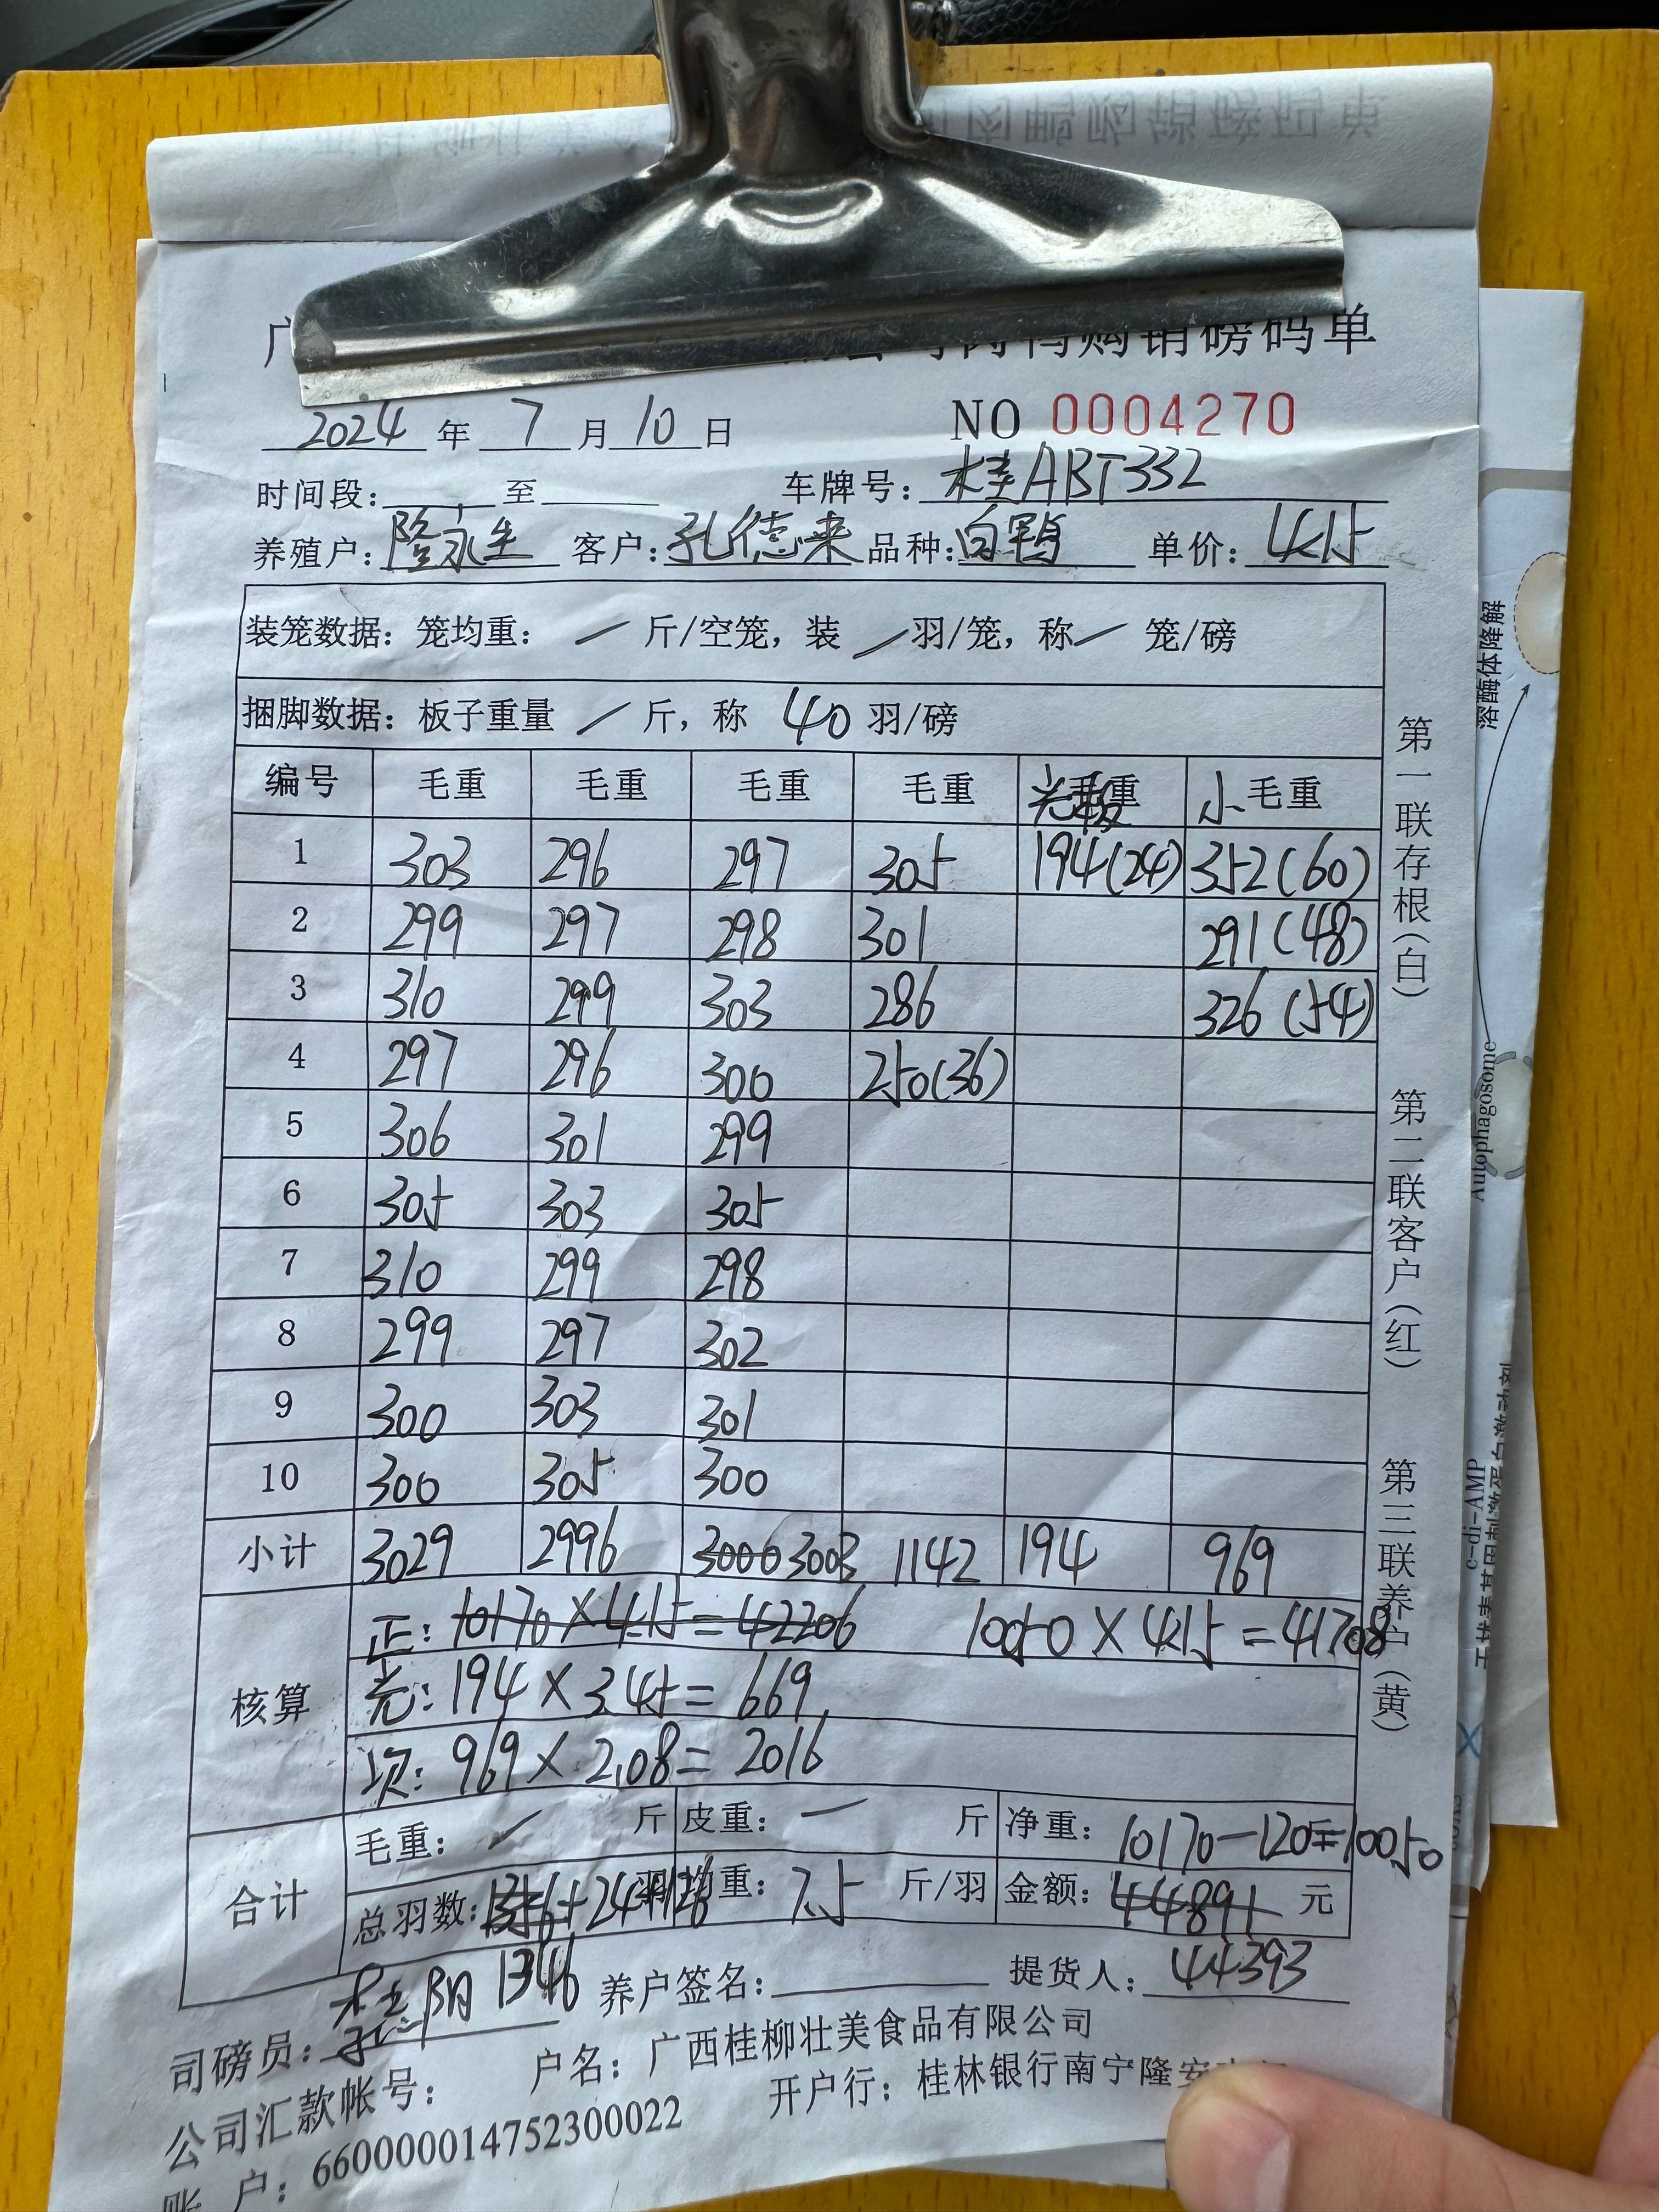 肉鸭购销磅码单
2024 年 7 月 10 日 NO 0004270
时间段: 至 车牌号: 桂ABT332
养殖户: 隆永生 客户: 孔德来 品种: 白鸭 单价: 4.15
装笼数据: 笼均重: / 斤/空笼, 装 / 羽/笼, 称 / 笼/磅
捆脚数据: 板子重量 / 斤, 称 40 羽/磅
编号 毛重 毛重 毛重 毛重 光板 小毛重
1 303 296 297 305 194(24) 352(60)
2 299 297 298 301 291(48)
3 310 299 303 286 326(54)
4 297 296 300 250(36)
5 306 301 299
6 305 303 305
7 310 299 298
8 299 297 302
9 300 303 301
10 300 305 300
小计 3029 2996 3000 3003 1142 194 969
核算
正: 10170×4.15=42206 10050×4.15=41708
光: 194×3.45=669
项: 969×2.08=2016
合计
毛重: / 斤 皮重: — 斤 净重: 10170-120=10050
总羽数: 羽 均重: 7.5 斤/羽 金额: 44891 元
1346 44393
司磅员: 养户签名: 提货人:
公司汇款帐号: 户名: 广西桂柳壮美食品有限公司
账 户: 660000014752300022 开户行: 桂林银行南宁隆安
第一联存根(白)
第二联客户(红)
第三联养户(黄)
溶酶体降解
Autophagosome
c-di-AMP